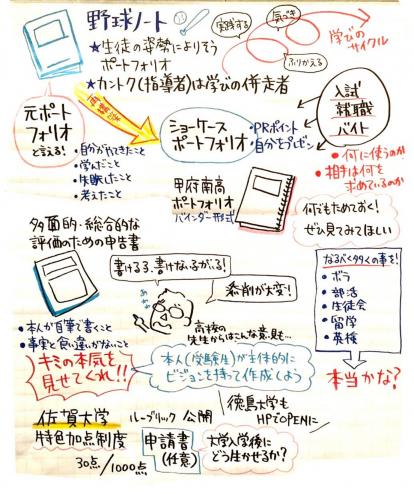 野球ノート
★生徒の姿勢によりそう
ポートフォリオ
★カントク(指導者)は学びの伴走者
実践する
気づき
ふりかえる
学びの
サイクル
元ポート
フォリオ
と言える!
・自分がやってきたこと
・学んだこと
・失敗したこと
・考えたこと
ショーケース
ポートフォリオ
・PRポイント
・自分をプレゼン
入試
就職
バイト
●何に使うのか
●相手は何を
求めているのか
甲府南高
ポートフォリオ
バインダー形式
何でもためておく!
ぜひ見てみてほしい
多面的・総合的な
評価のための申告書
書ける子、書けない子がでる!
添削が大変!
高校の
先生からはこんな意見も…
なるべく多くの事を!
・ボラ
・部活
・生徒会
・留学
・英検
本当かな?
・本人が自筆で書くこと
・事実と食い違いがないこと
キミの本気を
見せてくれ!!
本人(受験生)が主体的に
ビジョンを持って作成しよう
佐賀大学
特色加点制度
30点/1000点
ルーブリック公開
徳島大学も
HPでOPENに
申請書
(任意)
大学入学後に
どう生かせるか?